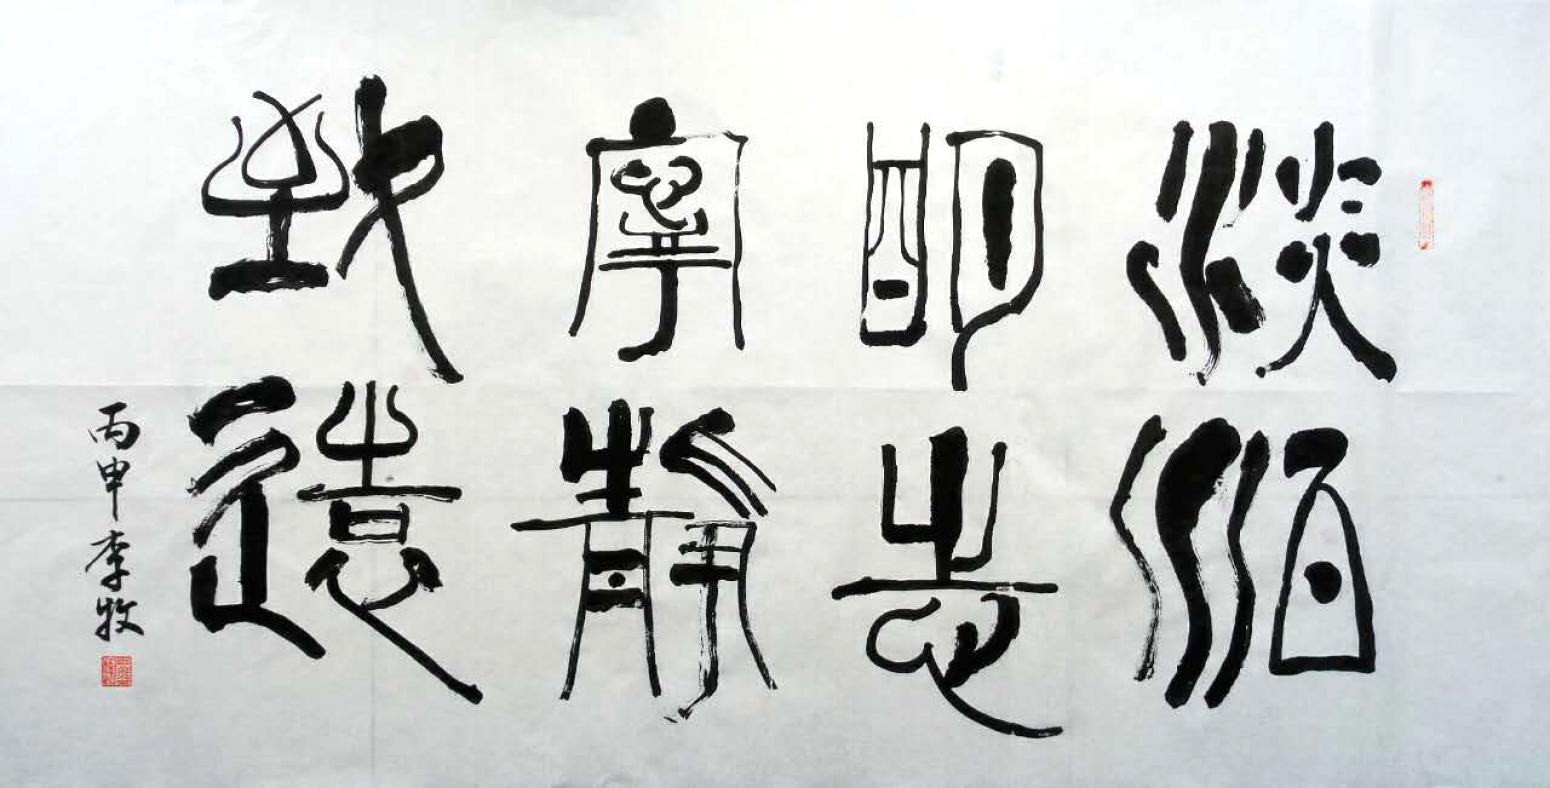 淡泊
明志
寧靜
致遠
丙申李牧